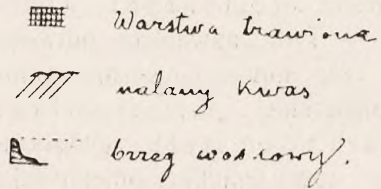 Warstwa trawiona
nalany Kwas
brzeg woskowy.